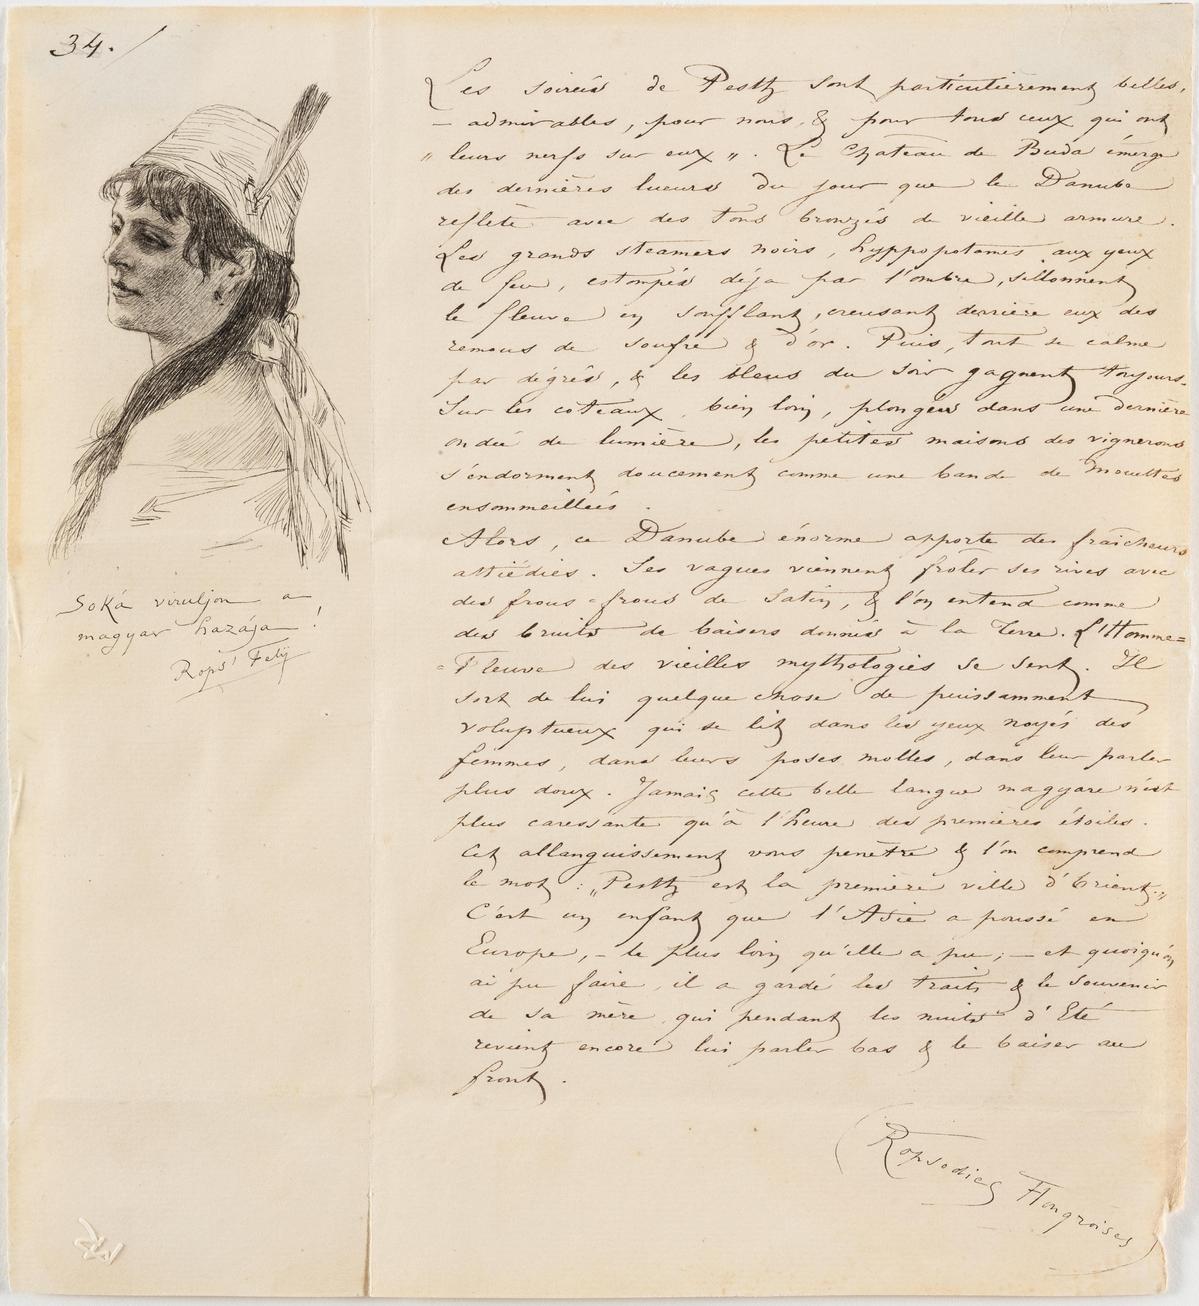 34.
Les soireés de Pesth sont particulièrement belles,
— admirables, pour nous, & pour tous ceux qui ont
„ leurs nerfs sur eux „. Le Chateau de Buda émerge
des dernières lueurs du jour que le Danube
reflète avec des tons bronzés de vieille armure.
Les grands steamers noirs, hyppopotames aux yeux
de feu, estompés déja par l'ombre, sillonnent
le fleuve en soufflant, creusant derrière eux des
remous de soufre & d'or. Puis, tout se calme
par dégrés, & les bleus du soir gagnent toujours.
Sur les coteaux, bien loin, plongées dans une dernière
ondeé de lumière, les petites maisons des vignerons
s'endorment doucement comme une bande de Mouettes
ensommeilleés.
Alors, ce Danube énorme apporte des fraîcheurs
attiédies. Ses vagues viennent frôler ses rives avec
des frous-frous de Satin, & l'on entend comme
des bruits de baisers donnés à la Terre. L'Homme=
=Fleuve des vieilles mythologies se sent. Il
sort de lui quelque chose de puissamment
voluptueux qui se lit dans les yeux noyés des
femmes, dans leurs poses molles, dans leur parler
plus doux. Jamais cette belle langue magyare n'est
plus caressante qu'à l'heure des premières étoiles.
Cet allanguissement vous penètre & l'on comprend
le mot : „Pesth est la première ville d'Orient.„
C'est un enfant que l'Asie a poussé en
Europe, – le plus loin qu'elle a pu ; – et quoiqu'on
ai pu faire, il a gardé les traits & le souvenir
de sa mère qui pendant les nuits d'Eté
revient encore lui parler bas & le baiser au
front.
(Ropsodies Hongroises)
Soká viruljon a
magyar hazája !
Rops' Feli